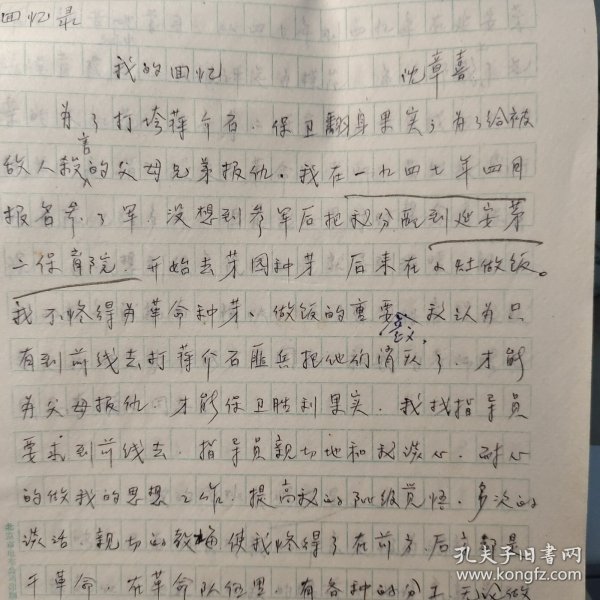 回忆录
我的回忆 沈章喜
为了打垮蒋介石、保卫翻身果实、为了给被
敌人杀害的父母兄弟报仇。我在一九四七年四月
报名参了军，没想到参军后把我分配到延安第
二保育院。开始去菜园种菜，后来在大灶做饭。
我不懂得为革命种菜、做饭的重要意义，我认为只
有到前线去打蒋介石匪兵把他们消灭了，才能
为父母报仇，才能保卫胜利果实，我找指导员
要求到前线去，指导员亲切地和我谈心，耐心
的做我的思想工作，提高我的阶级觉悟，多次的
谈话，亲切的教悔使我懂得了在前方，后方都是
干革命，在革命队伍里，有各种的分工，无论做
孔夫子旧书网
www.kongfz.com